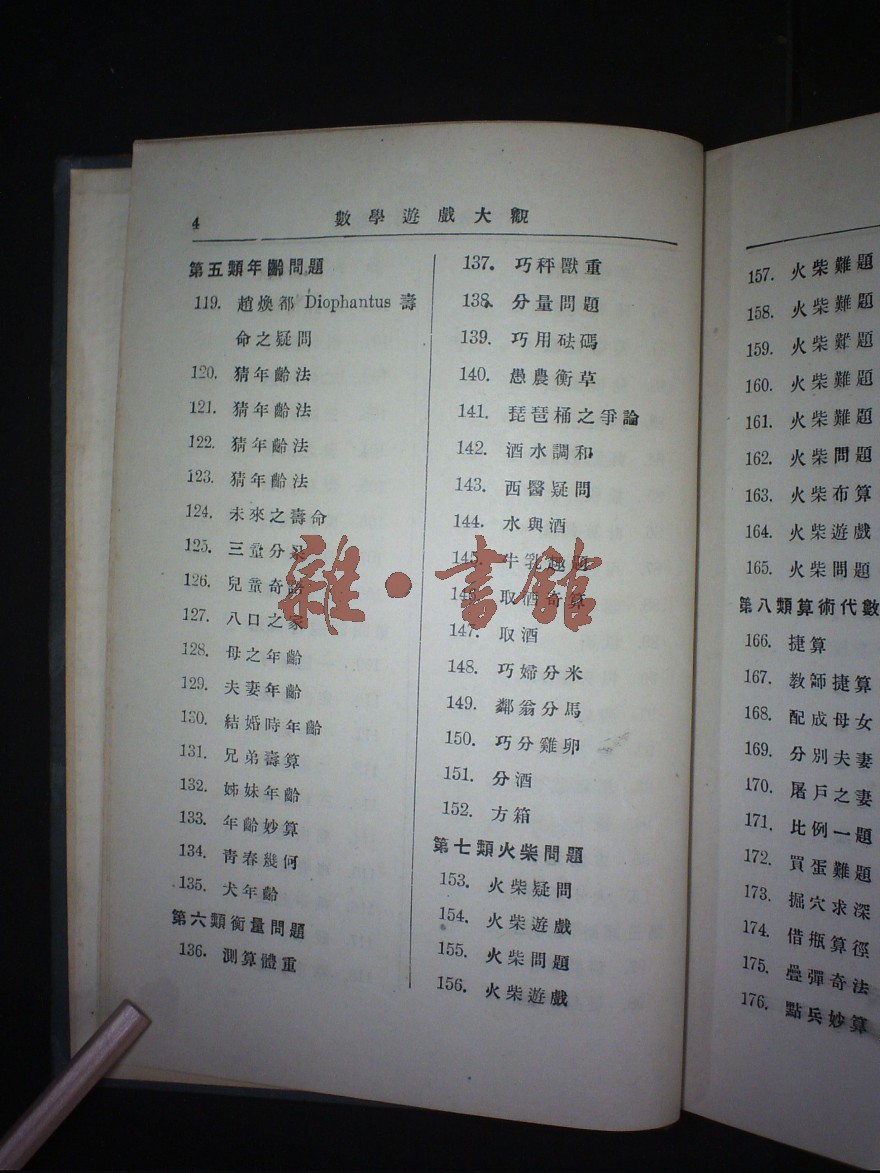 4
數學遊戲大觀
第五類年齡問題
119. 趙煥都 Diophantus 壽
命之疑問
120. 猜年齡法
121. 猜年齡法
122. 猜年齡法
123. 猜年齡法
124. 未來之壽命
125. 三童分
126. 兒童奇語
127. 八口之家
128. 母之年齡
129. 夫妻年齡
130. 結婚時年齡
131. 兄弟壽算
132. 姊妹年齡
133. 年齡妙算
134. 青春幾何
135. 犬年齡
第六類衡量問題
136. 測算體重
137. 巧秤獸重
138. 分量問題
139. 巧用砝碼
140. 愚農衡草
141. 琵琶桶之爭論
142. 酒水調和
143. 西醫疑問
144. 水與酒
145. 牛乳趣題
146. 取酒奇算
147. 取酒
148. 巧婦分米
149. 鄰翁分馬
150. 巧分雞卵
151. 分酒
152. 方箱
第七類火柴問題
153. 火柴疑問
154. 火柴遊戲
155. 火柴問題
156. 火柴遊戲
157. 火柴難題
158. 火柴難題
159. 火柴難題
160. 火柴難題
161. 火柴難題
162. 火柴問題
163. 火柴布算
164. 火柴遊戲
165. 火柴問題
第八類算術代數
166. 捷算
167. 教師捷算
168. 配成母女
169. 分別夫妻
170. 屠戶之妻
171. 比例一題
172. 買蛋難題
173. 掘穴求深
174. 借瓶算徑
175. 疊彈奇法
176. 點兵妙算
雜·書館